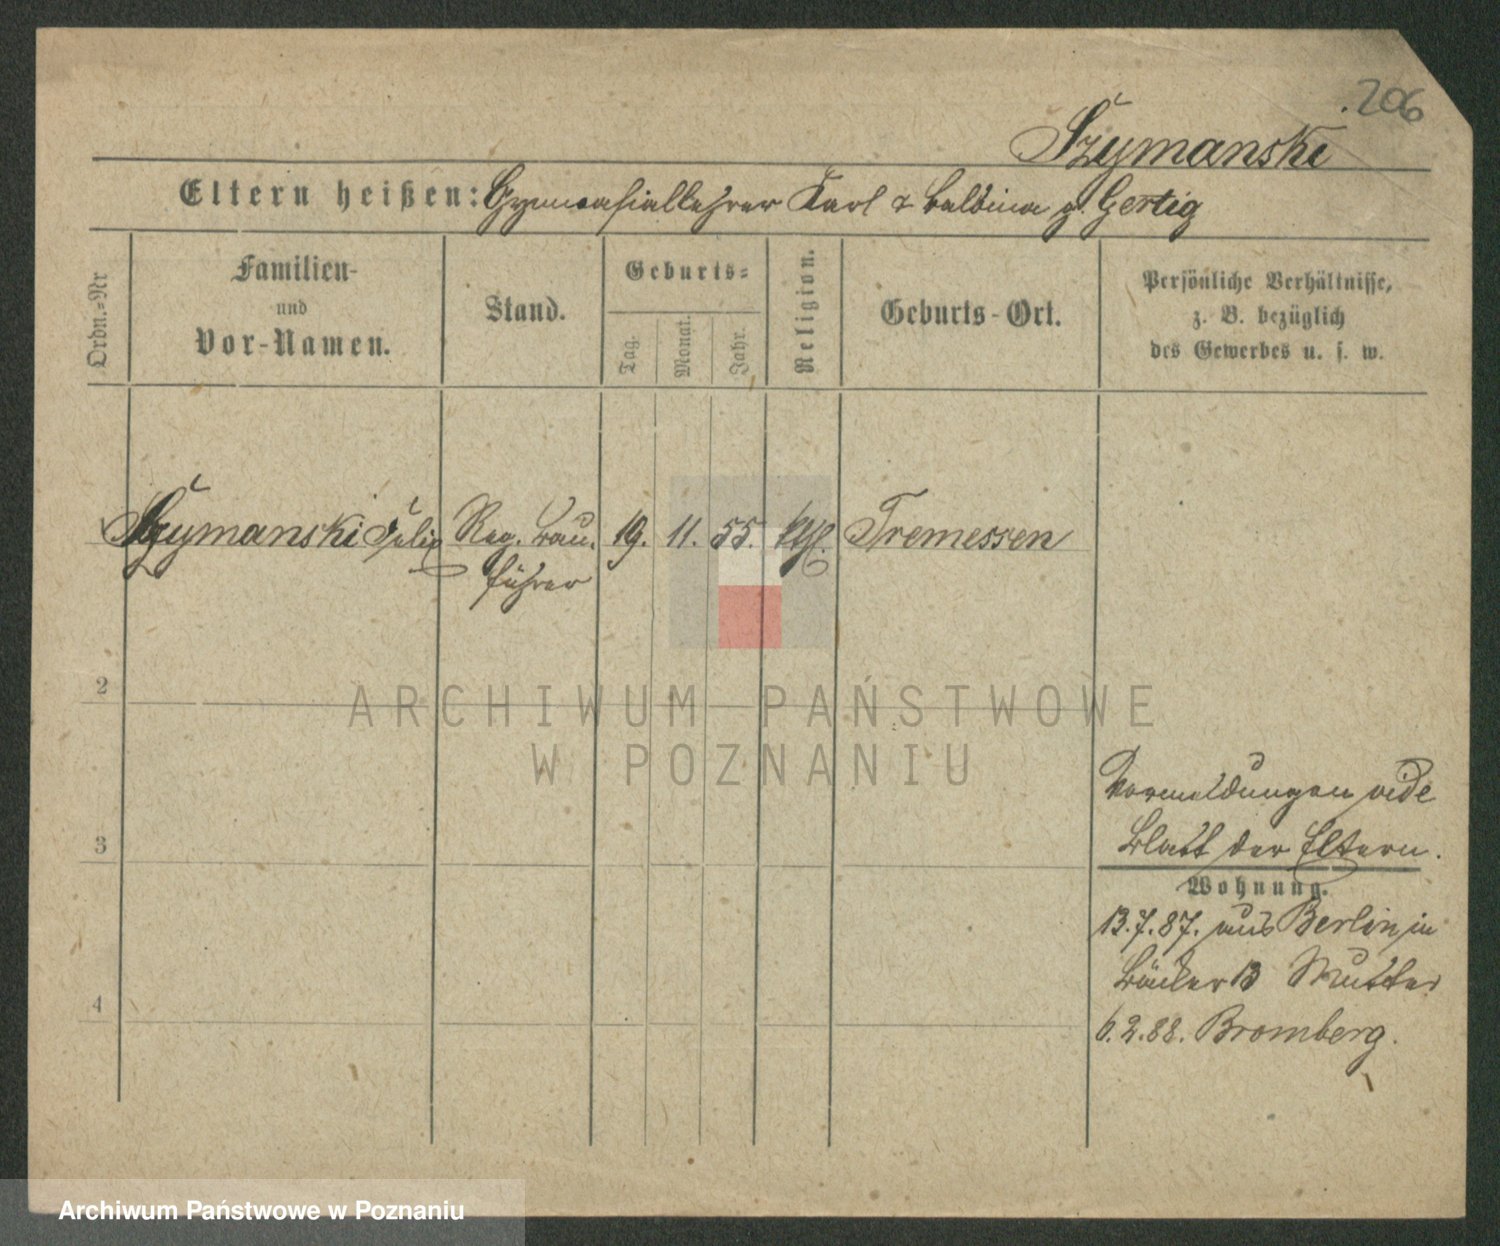 206
Szymanski
Eltern heißen: Gymnasiallehrer Karl & Balbina g. Gertig
Ordn.-Nr
Familien-
und
Vor-Namen.
Stand.
Geburts-
Tag.
Monat.
Jahr.
Religion.
Geburts-Ort.
Persönliche Verhältnisse,
z. B. bezüglich
des Gewerbes u. s. w.
1 Szymanski Felix Reg. Bau- 19. 11. 55. kth. Tremessen
führer
2
ARCHIWUM PAŃSTWOWE
W POZNANIU
Vormeldungen vide
Blatt der Eltern.
3
Wohnung.
13.7.87. aus Berlin in
Bäcker 13 Mutter
4
6.2.88. Bromberg.
Archiwum Państwowe w Poznaniu